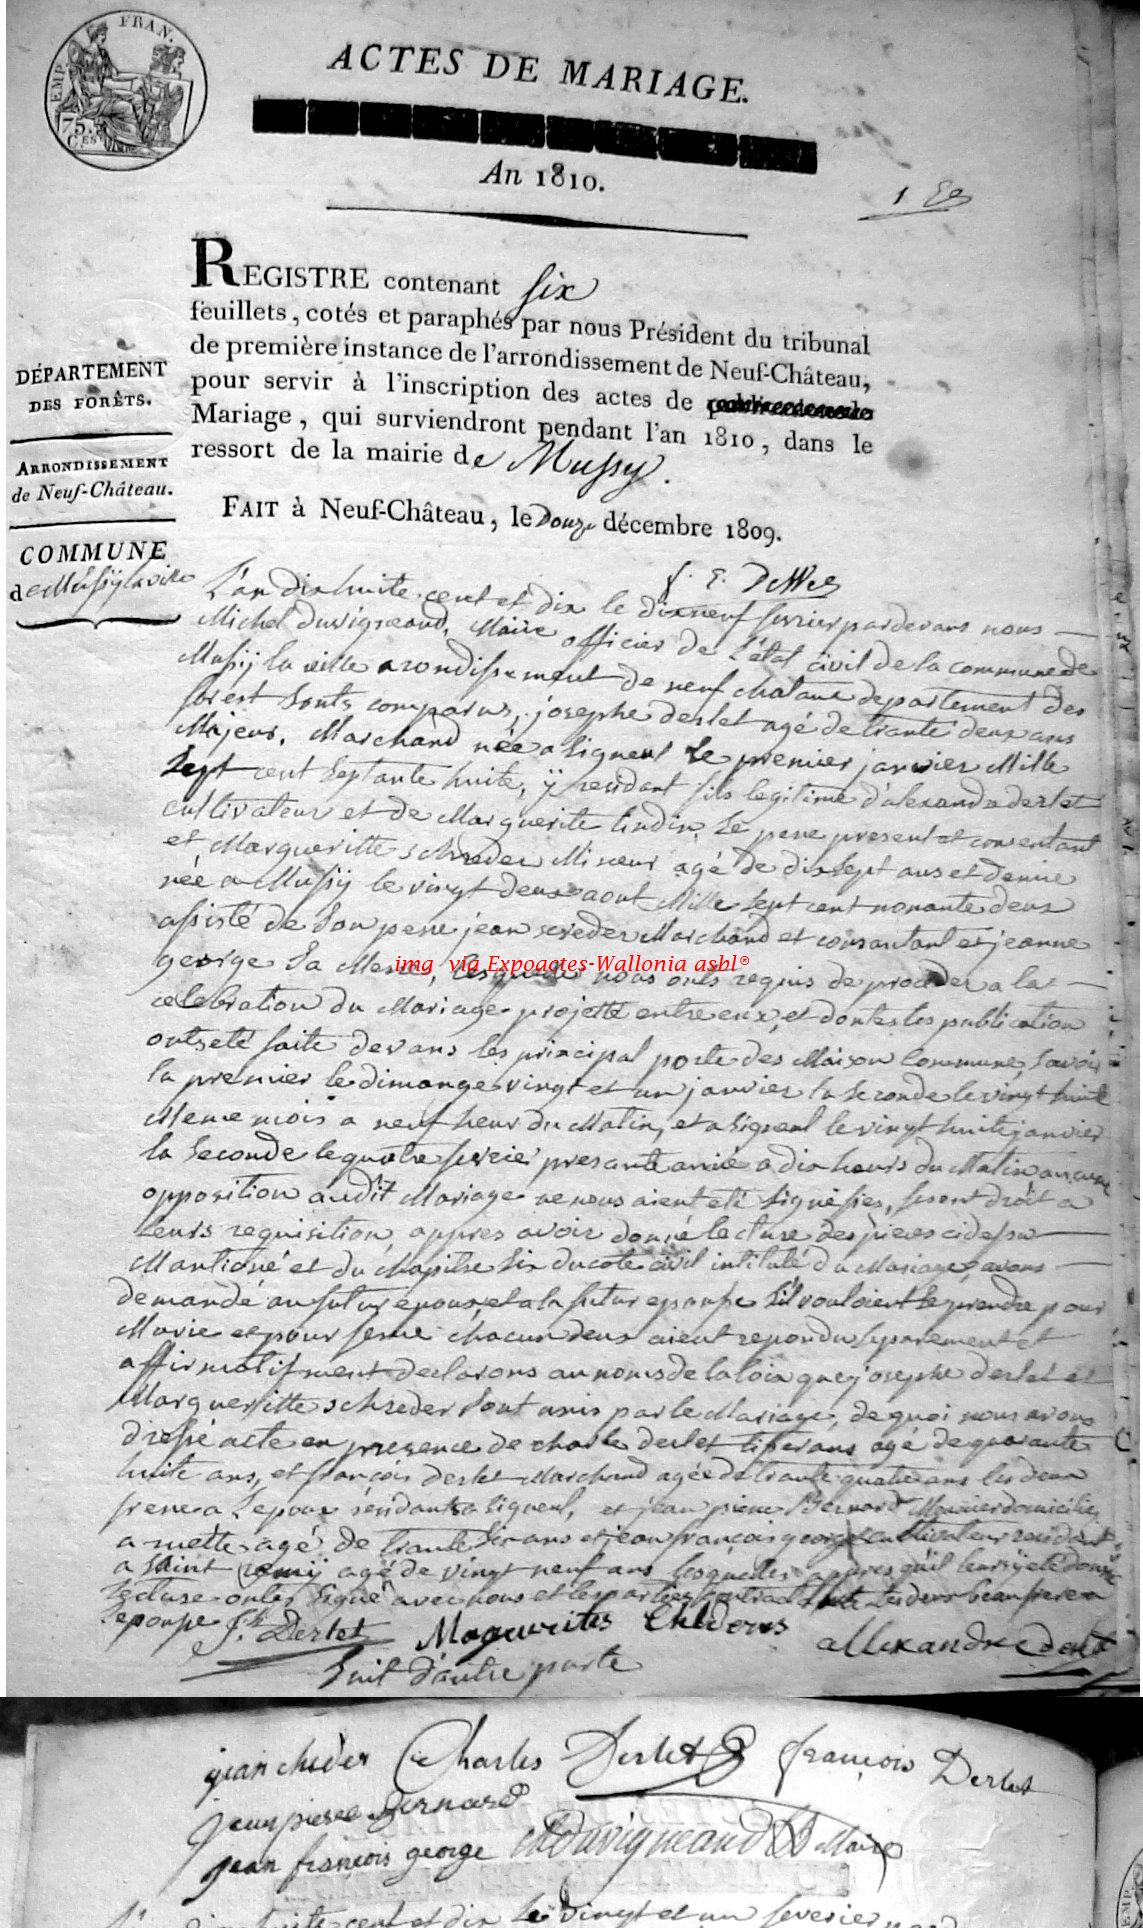 EMP. FRAN.
75.
C.ES
ACTES DE MARIAGE.
An 1810.
1
REGISTRE contenant six
feuillets, cotés et paraphés par nous Président du tribunal
de première instance de l'arrondissement de Neuf-Château,
pour servir à l'inscription des actes de
Mariage, qui surviendront pendant l'an 1810, dans le
ressort de la mairie de Mussy.
FAIT à Neuf-Château, le Douze décembre 1809.
DÉPARTEMENT
DES FORÊTS.
ARRONDISSEMENT
de Neuf-Château.
COMMUNE
de Mussy la ville
L'an dix huite cent et dix le dixneuf fevrier par devans nous
Michel Duvigneaud, Maire officier de L'état civil de la commune de
Musÿ la ville arondissement de neuf chataue departement des
forest sonts comparus, josephe derlet agé de trante deux ans
Majeur, Marchand née a Signeul Le premier janvier Mille
Sept cent Septante huite, ÿ residant fils legitime d'alexandre derlet
cultivateur et de Marguerite Lindin, Le pere present et consentant
et Margueritte schreder Mineur agé de dix sept ans et demie
née a Musÿ le vingt deux aout Mille Sept cent nonante deux
assisté de Son pere jean screder Marchand et consantant et jeanne
george Sa Mere, lesquels nous onts requis de proceder a la
celebration du Mariage projetté entre eux, et dontes les publication
onts eté faite devans les principal porte des Maison Commune, Savoir
la premier le dimange vingt et un janvier la Seconde le vingt huite
Meme mois a neuf heur du Matin, et a Signeul le vingt huite janvier
la Seconde le quatre fevrier presante année a dix heurs du Matin aucune
opposition audit Mariage ne nous aient eté Signifies, fesont droit a
leurs requisition, appres avoir donné lecture des pieces cidessu
Mantioné et du chapitre Six du cote civil intitulé du Mariage, avons
demandé au futur epoux, et a la futur epouse S'il vouloient Se prendre pour
Marie et pour feme chacun deux aient repondu Separement et
affirmatifment declarons au noms de la loix que josephe derlet et
Margueritte schreder Sont unis par le Mariage, de quoi nous avons
dressé acte en presence de charle derlet agé de quarante
huite ans, et françois derlet Marchand agée de trante quatre ans les deux
frere a Lepoux residants a Signeul, et jean piere Bernard Meunier domicilie
a mette agé de trante Six ans et jean françois george cultivateur resident
a Saint remÿ agé de vingt neuf ans lesquelles appres qu'il leurs ÿ eté donné
Lecture onts Signé avec nous et les parties contractante Les deux beau frere a
Lepouse J.h Derlet Maguerites Chedeurs allexandre derlet
Suit d'autre parte
img via Expoactes-Wallonia asbl®
jean chider Charles Derlet françois Derlet
jean piere Bernard
jean françois george MDuvigneaud Maire
dix huite cent et dix Le vingt et un fevrier